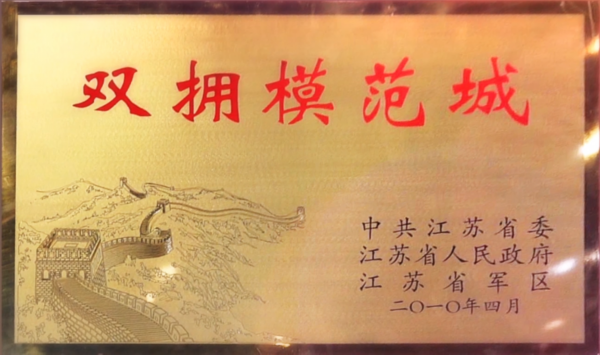 双拥模范城
中共江苏省委
江苏省人民政府
江苏省军区
二〇一〇年四月